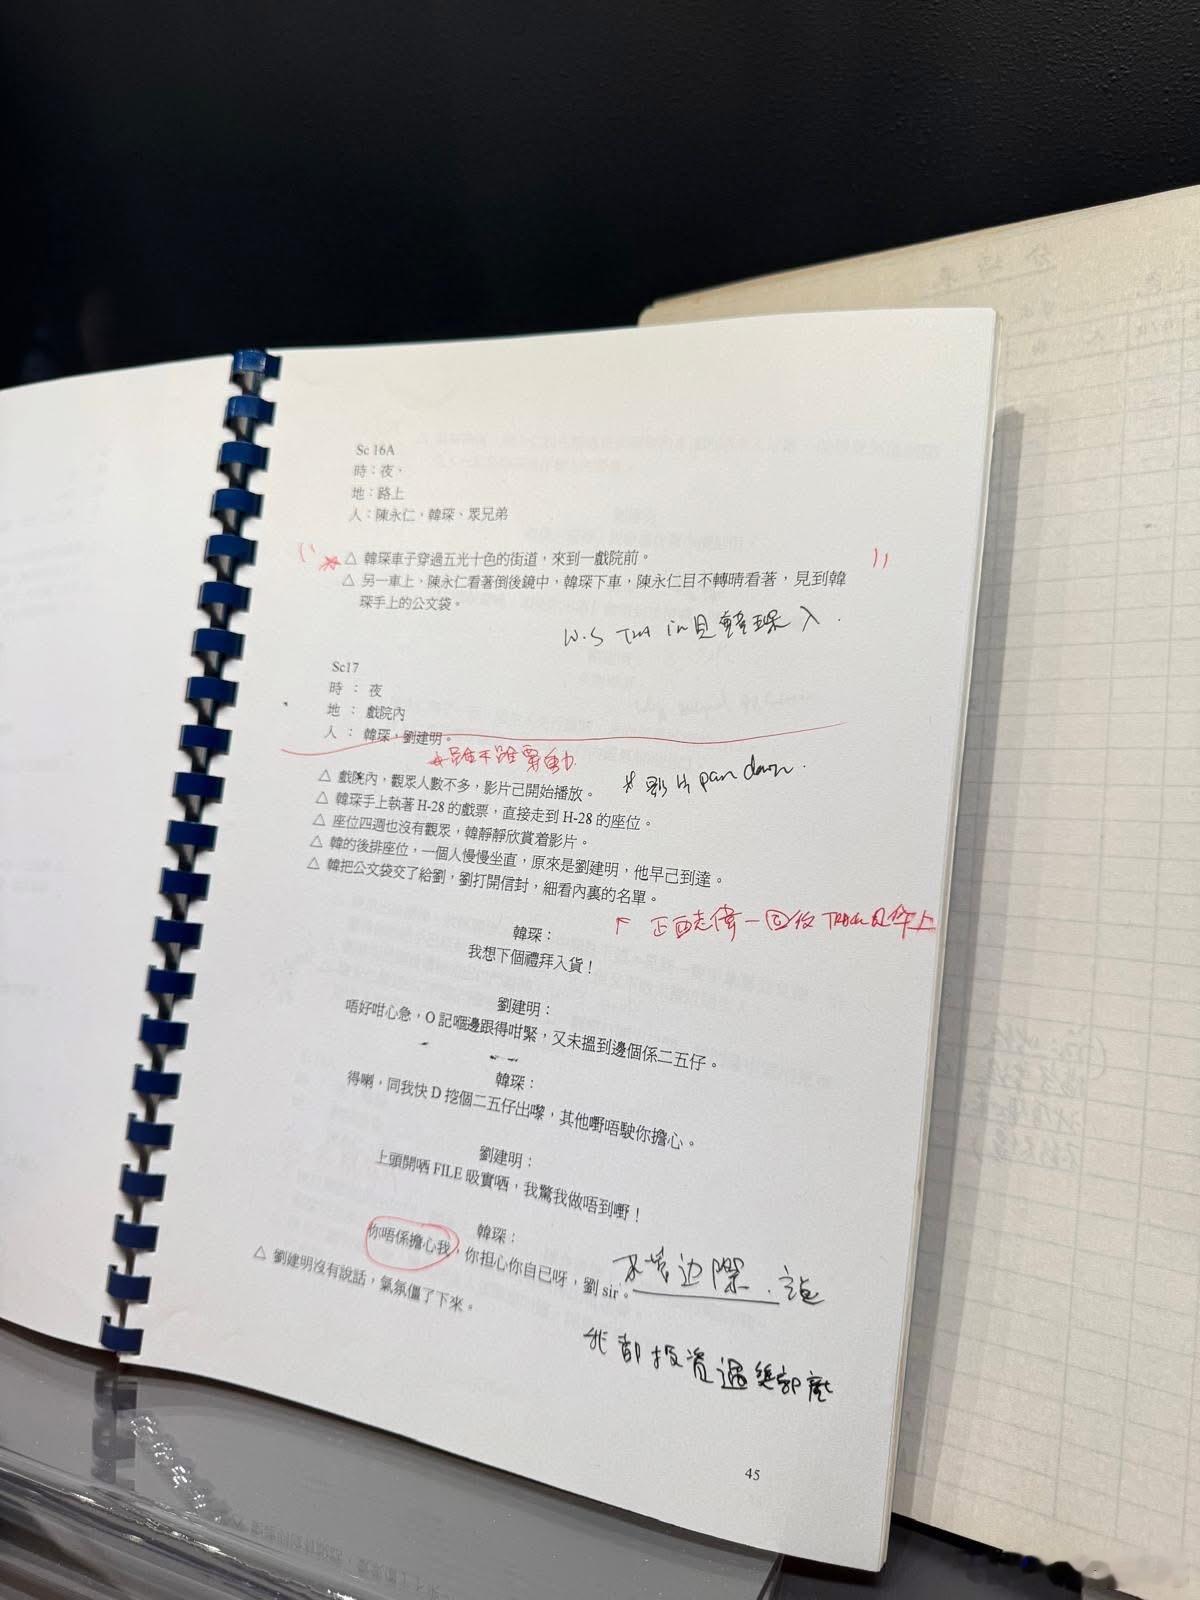 Sc 16A
時：夜．
地：路上
人：陳永仁，韓琛、眾兄弟
△ 韓琛車子穿過五光十色的街道，來到一戲院前。
△ 另一車上，陳永仁看著倒後鏡中，韓琛下車，陳永仁目不轉睛看著，見到韓
琛手上的公文袋。
W.S in 見韓琛入．
Sc17
時 ： 夜
地 ： 戲院內
人 ： 韓琛，劉建明。
△ 戲院內，觀眾人數不多，影片已開始播放。
影片 pan down.
△ 韓琛手上執著 H-28 的戲票，直接走到 H-28 的座位。
△ 座位四週也沒有觀眾，韓靜靜欣賞着影片。
△ 韓的後排座位，一個人慢慢坐直，原來是劉建明，他早已到達。
△ 韓把公文袋交了給劉，劉打開信封，細看內裏的名單。
韓琛：
我想下個禮拜入貨！
劉建明：
唔好咁心急，O 記嗰邊跟得咁緊，又未搵到邊個係二五仔。
韓琛：
得喇，同我快 D 挖個二五仔出嚟，其他嘢唔駛你擔心。
劉建明：
上頭開哂 FILE 吸實哂，我驚我做唔到嘢！
韓琛：
你唔係擔心我，你担心你自己呀，劉 sir。
△ 劉建明沒有說話，氣氛僵了下來。
不着边際．
我都投資過幾部
45